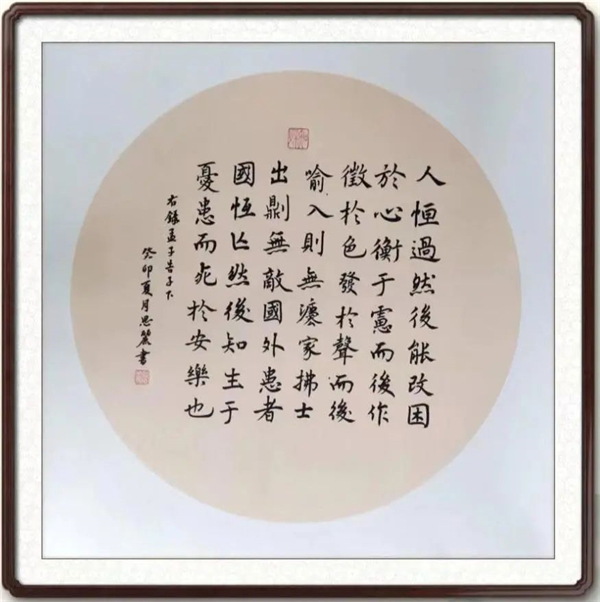 人恒過然後能改困
於心衡于慮而後作
徵於色發於聲而後
喻入則無灋家拂士
出則無敵國外患者
國恆亡然後知生于
憂患而死於安樂也
右錄孟子告子下
癸卯夏月思麓書